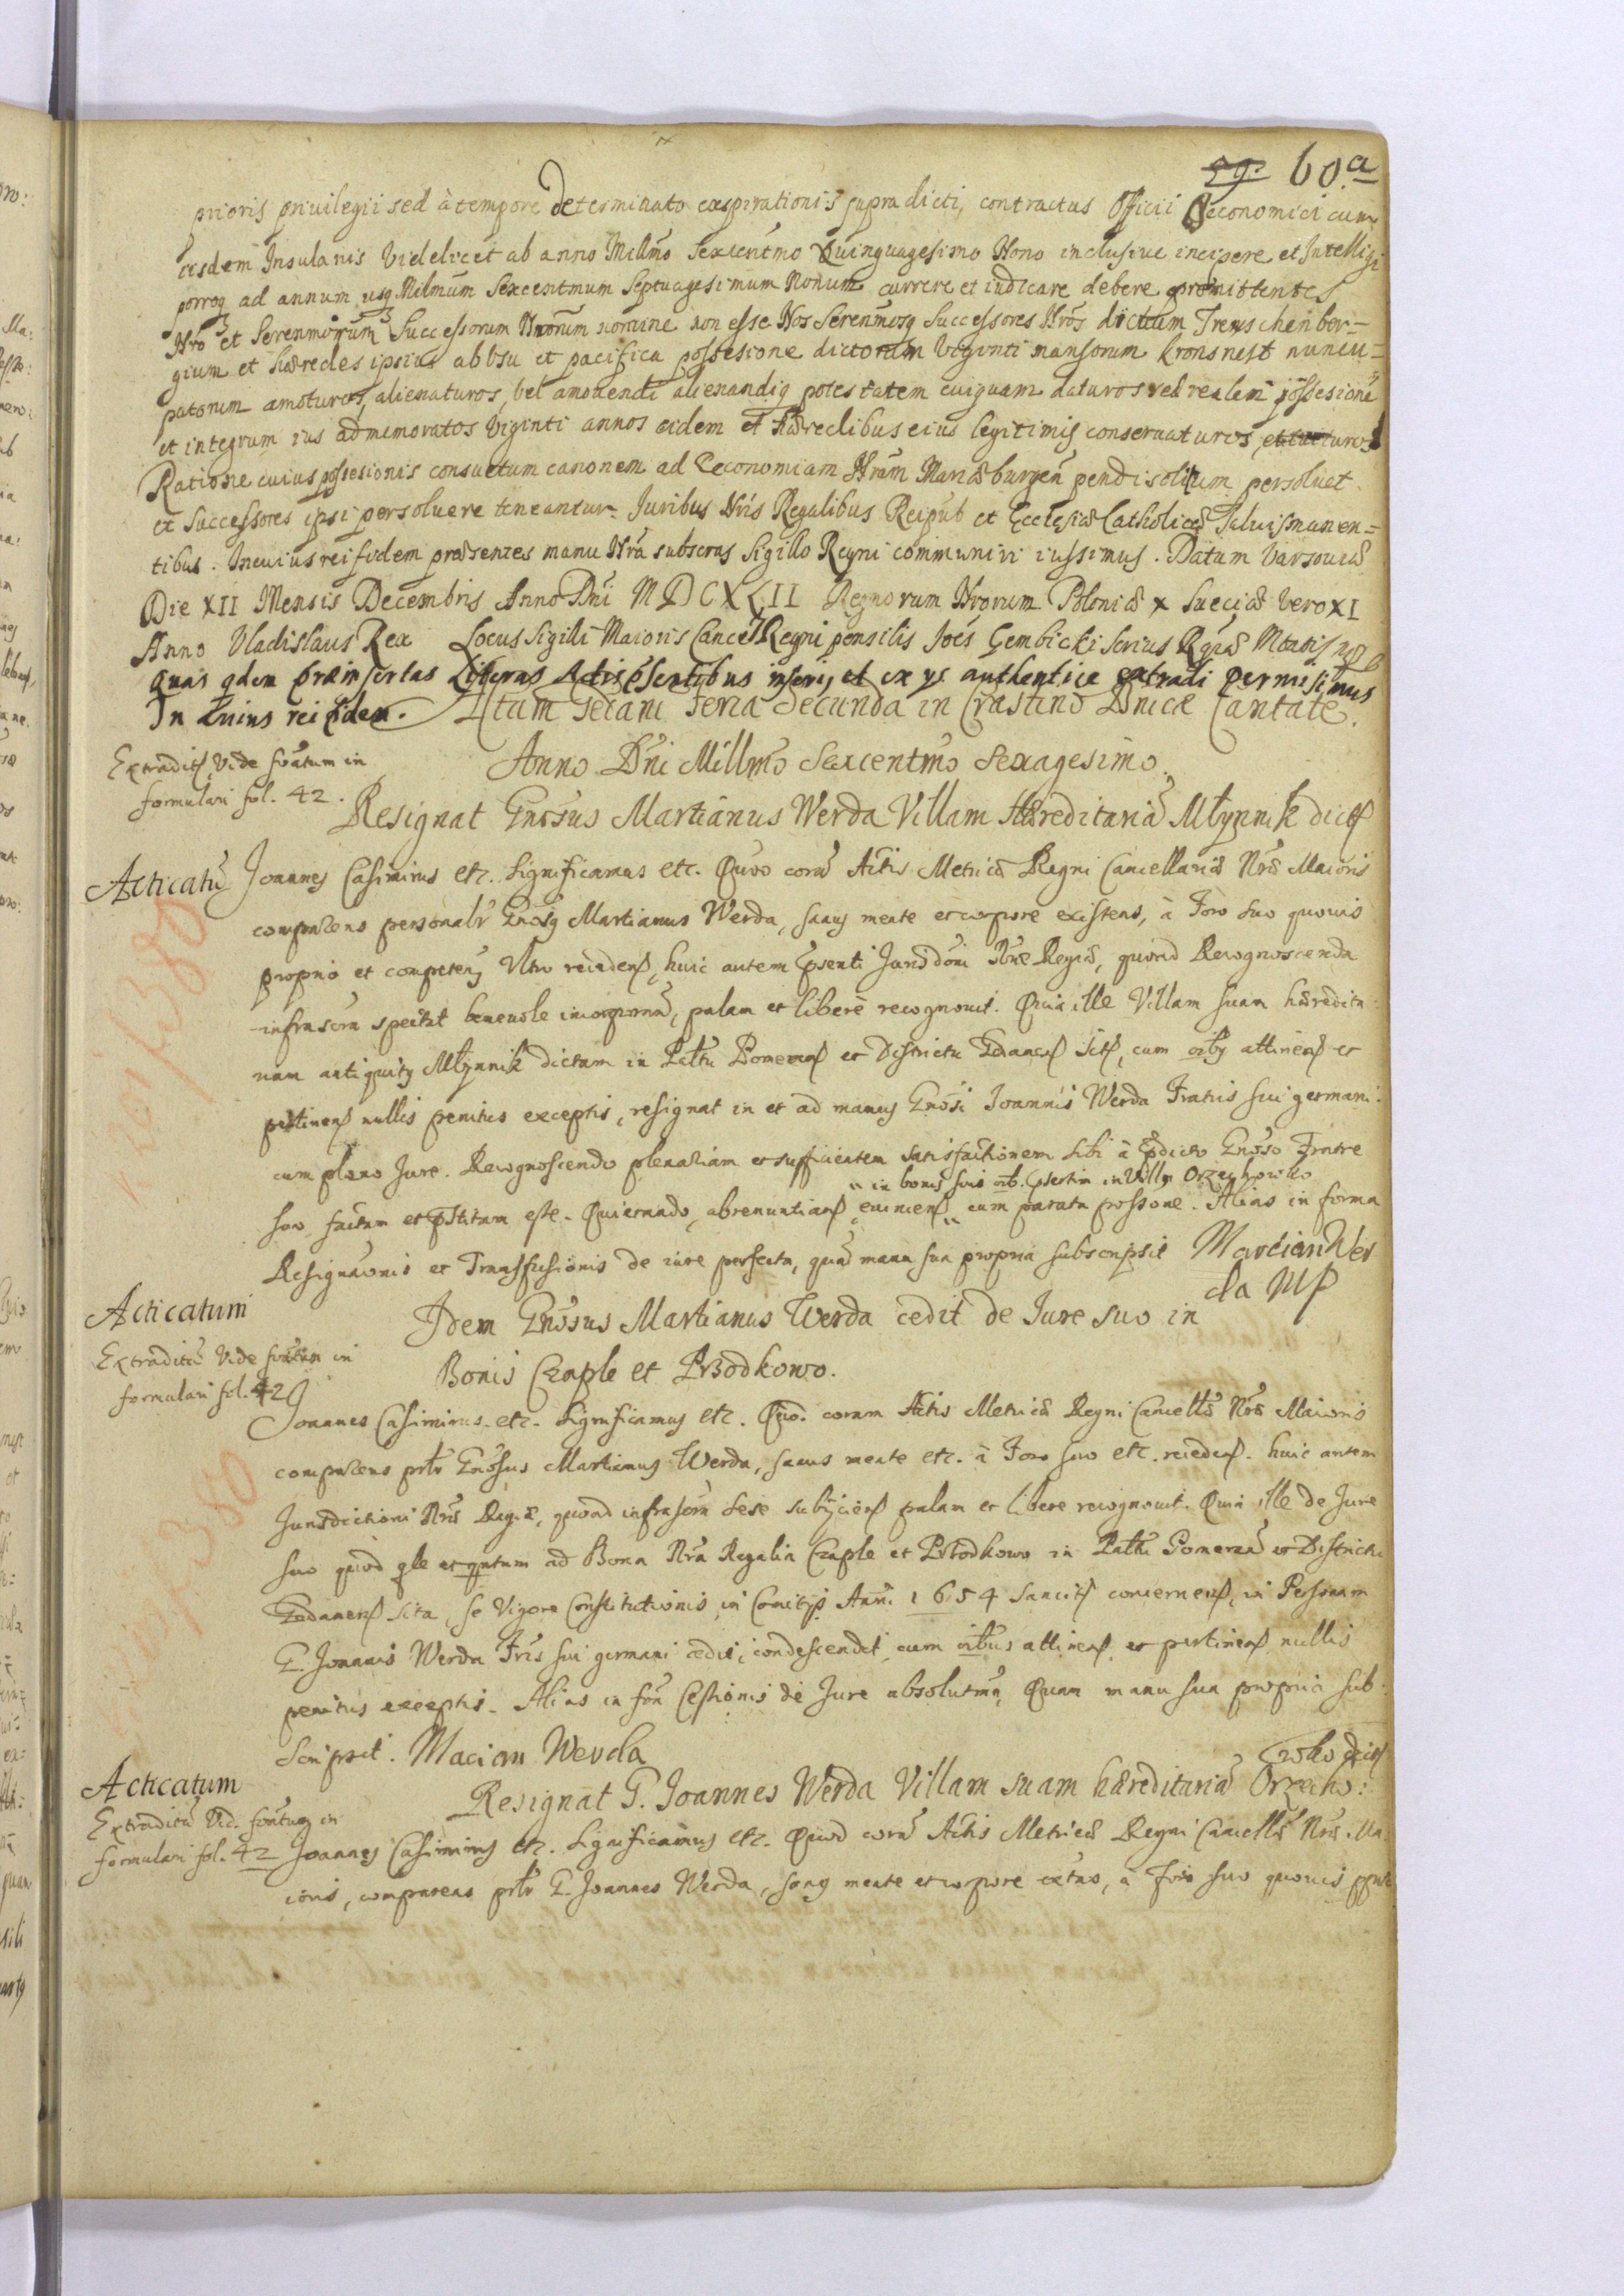 59. 60.a
prioris priuilegii sed à tempore determinato exspirationis supra dicti, contractus Officii Oeconomici cum
iisdem Insulanis Videlicet ab anno Millmo Sexcentmo Quinquagesimo Nono inclusiue incipere et Intelligi
porroq ad annum usq Milmum Sexcentmum Septuagesimum Nonum currere et iudicare debere promittentes
Nro et Serenmorum Successorum Nrorum nomine non esse Nos Serenmosq Successores Nros dictum Treuschenber-
gium et Hæredes ipsius ab Vsu et pacifica possesione dictorum Viginti mansorum Kronsnest nuncu-
patorum amoturos, alienaturos, vel amouendi alienandiq potestatem cuiquam daturos sed realem possesione
et integrum ius ad memoratos Viginti annos eidem et Hæredibus eius legitimis conseruaturos,
Ratione cuius possesionis consuetum canonem ad Oeconomiam Nram Mariæburgen pendi solitum persoluet
et Successores ipsi persoluere teneantur. Juribus Nris Regalibus Reipub et Ecclesiæ Catholicæ Saluis manen=
tibus. In cuius rei fidem præsentes manu Nra subscras Sigillo Regni communiri iussimus. Datum Varsouiæ
Die XII Mensis Decembris Anno Dni MDCXLII Regnorum Nrorum Poloniæ x Sueciæ Vero XI
Anno Vladislaus Rex Locus Sigilli Maioris Cancel Regni pensilis Joes Gembicki Serius Rgiæ Mtatis
Quas qdem præinsertas Literas Actis psentibus inseri, et ex ys authentice extradi permisimus
In cuius rei fidem. Actum Gedani Feria Secunda in Crastino Dnicæ Cantate.
Anno Dni Millmo Sexcentmo Sexagesimo.
Extradit Vide in
formulari fol. 42.
Resignat Gnosus Martianus Werda Villam Hæreditaria Młynnik dict
Acticatu Joannes Casimirus etc. Significamus etc. Quo cora Actis Metricæ Regni Cancellariæ Nræ Maioris
comparens personalr Gnosq Martianus Werda, sanus mente et corpore existens, à Foro suo quouis
proprio et competen Vltro recedens, huic autem psenti Jurisdoni Nræ Regiæ, quoad Recognoscenda
infrascra spectat beneuole incorporan, palam et liberè recognouit. Quia ille Villam suam hæredita:
riam antiquity Młynnik dictam in Pattu Pomeran et Districtu Gdanen sit, cum oiby attinen et
pertinen nullis penitus exceptis, resignat in et ad manus Gnosi Joannis Werda Fratris sui germani:
cum pleno Jure. Recognoscendo plenariam et sufficientem satisfactionem sibi à pdicto Gnoso Fratre
in bonis suis oib. psertim in Villa Orzechowko
suo factam et pstitam esse. Quietando, abrenuntian, euincen, cum parata possone. Alias in forma
Resignaonis et Transfusionis de iure perfecta, qua manu sua propria subscripsit Marcian Wer
da Mp
Acticatum
Idem Gnosus Martianus Werda cedit de Jure suo in
Extraditu Vide in
Bonis Czaple et Przodkowo.
formulari fol. 42
Joannes Casimirus etc. Significamus etc. Quo. coram Actis Metricæ Regni Cancellæ Nræ Maioris
comparens prlr Gnosus Martianus Werda, sanus mente etc. à Foro suo etc. receden. huic autem
Jurisdictioni Nræ Regiæ, quoad infrascra sese subijcien palam et libere recognouit. Quia ille de Jure
suo quod qle et qntum ad Bona Nra Regalia Czaple et Przodkowo in Pattu Pomeran et Districtu
Gedanen sita, se Vigore Constitutionis in Comitijs Anni 1654 Sancit concernen, in Personam
G. Joannis Werda Fris sui germani cedit, condescendit, cum oibus attinen. et pertinen nullis
penitus exceptis. Alias in fora Cessionis de Jure absolutma, Quam manu sua propria sub:
scripsit. Macian Werda
Acticatum
Resignat G. Joannes Werda Villam suam hæreditaria Orzecho:
wko dict
Extraditu Vid. in
formulari fol. 42 Joannes Casimirus etc. Significamus etc. Quod cora Actis Metricæ Regni Cancellæ Nræ Ma:
ioris, comparens prlr G. Joannes Werda, sanq mente et corpore extns, à Foro suo quouis pprio